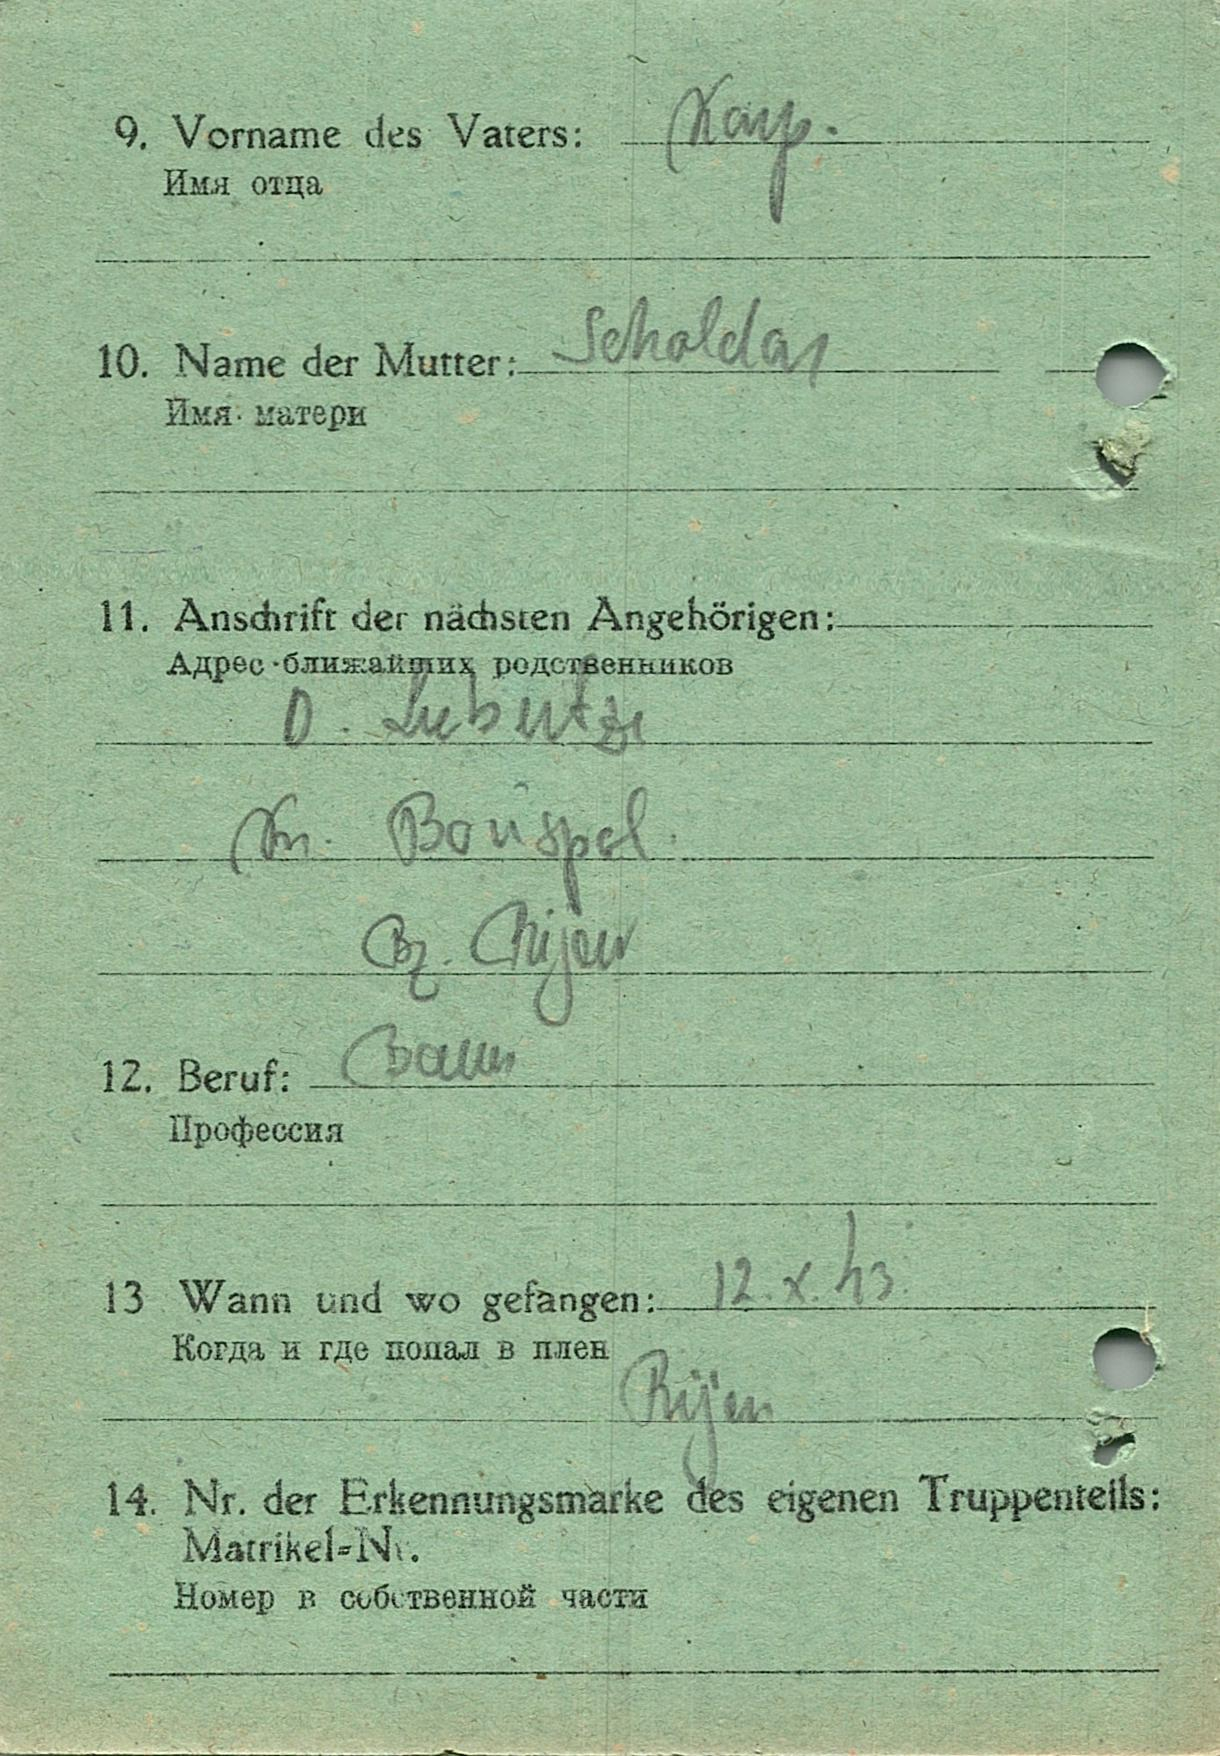 9. Vorname des Vaters: Karp.
Имя отца
10. Name der Mutter: Scholdar
Имя матери
11. Anschrift der nächsten Angehörigen:
Адрес ближайших родственников
D.
Kr.
Bz. Kijew
12. Beruf: Bauer
Профессия
13 Wann und wo gefangen: 12. X. 43.
Когда и где попал в плен
Kijew
14. Nr. der Erkennungsmarke des eigenen Truppenteils:
Matrikel-Nr.
Номер в собственной части